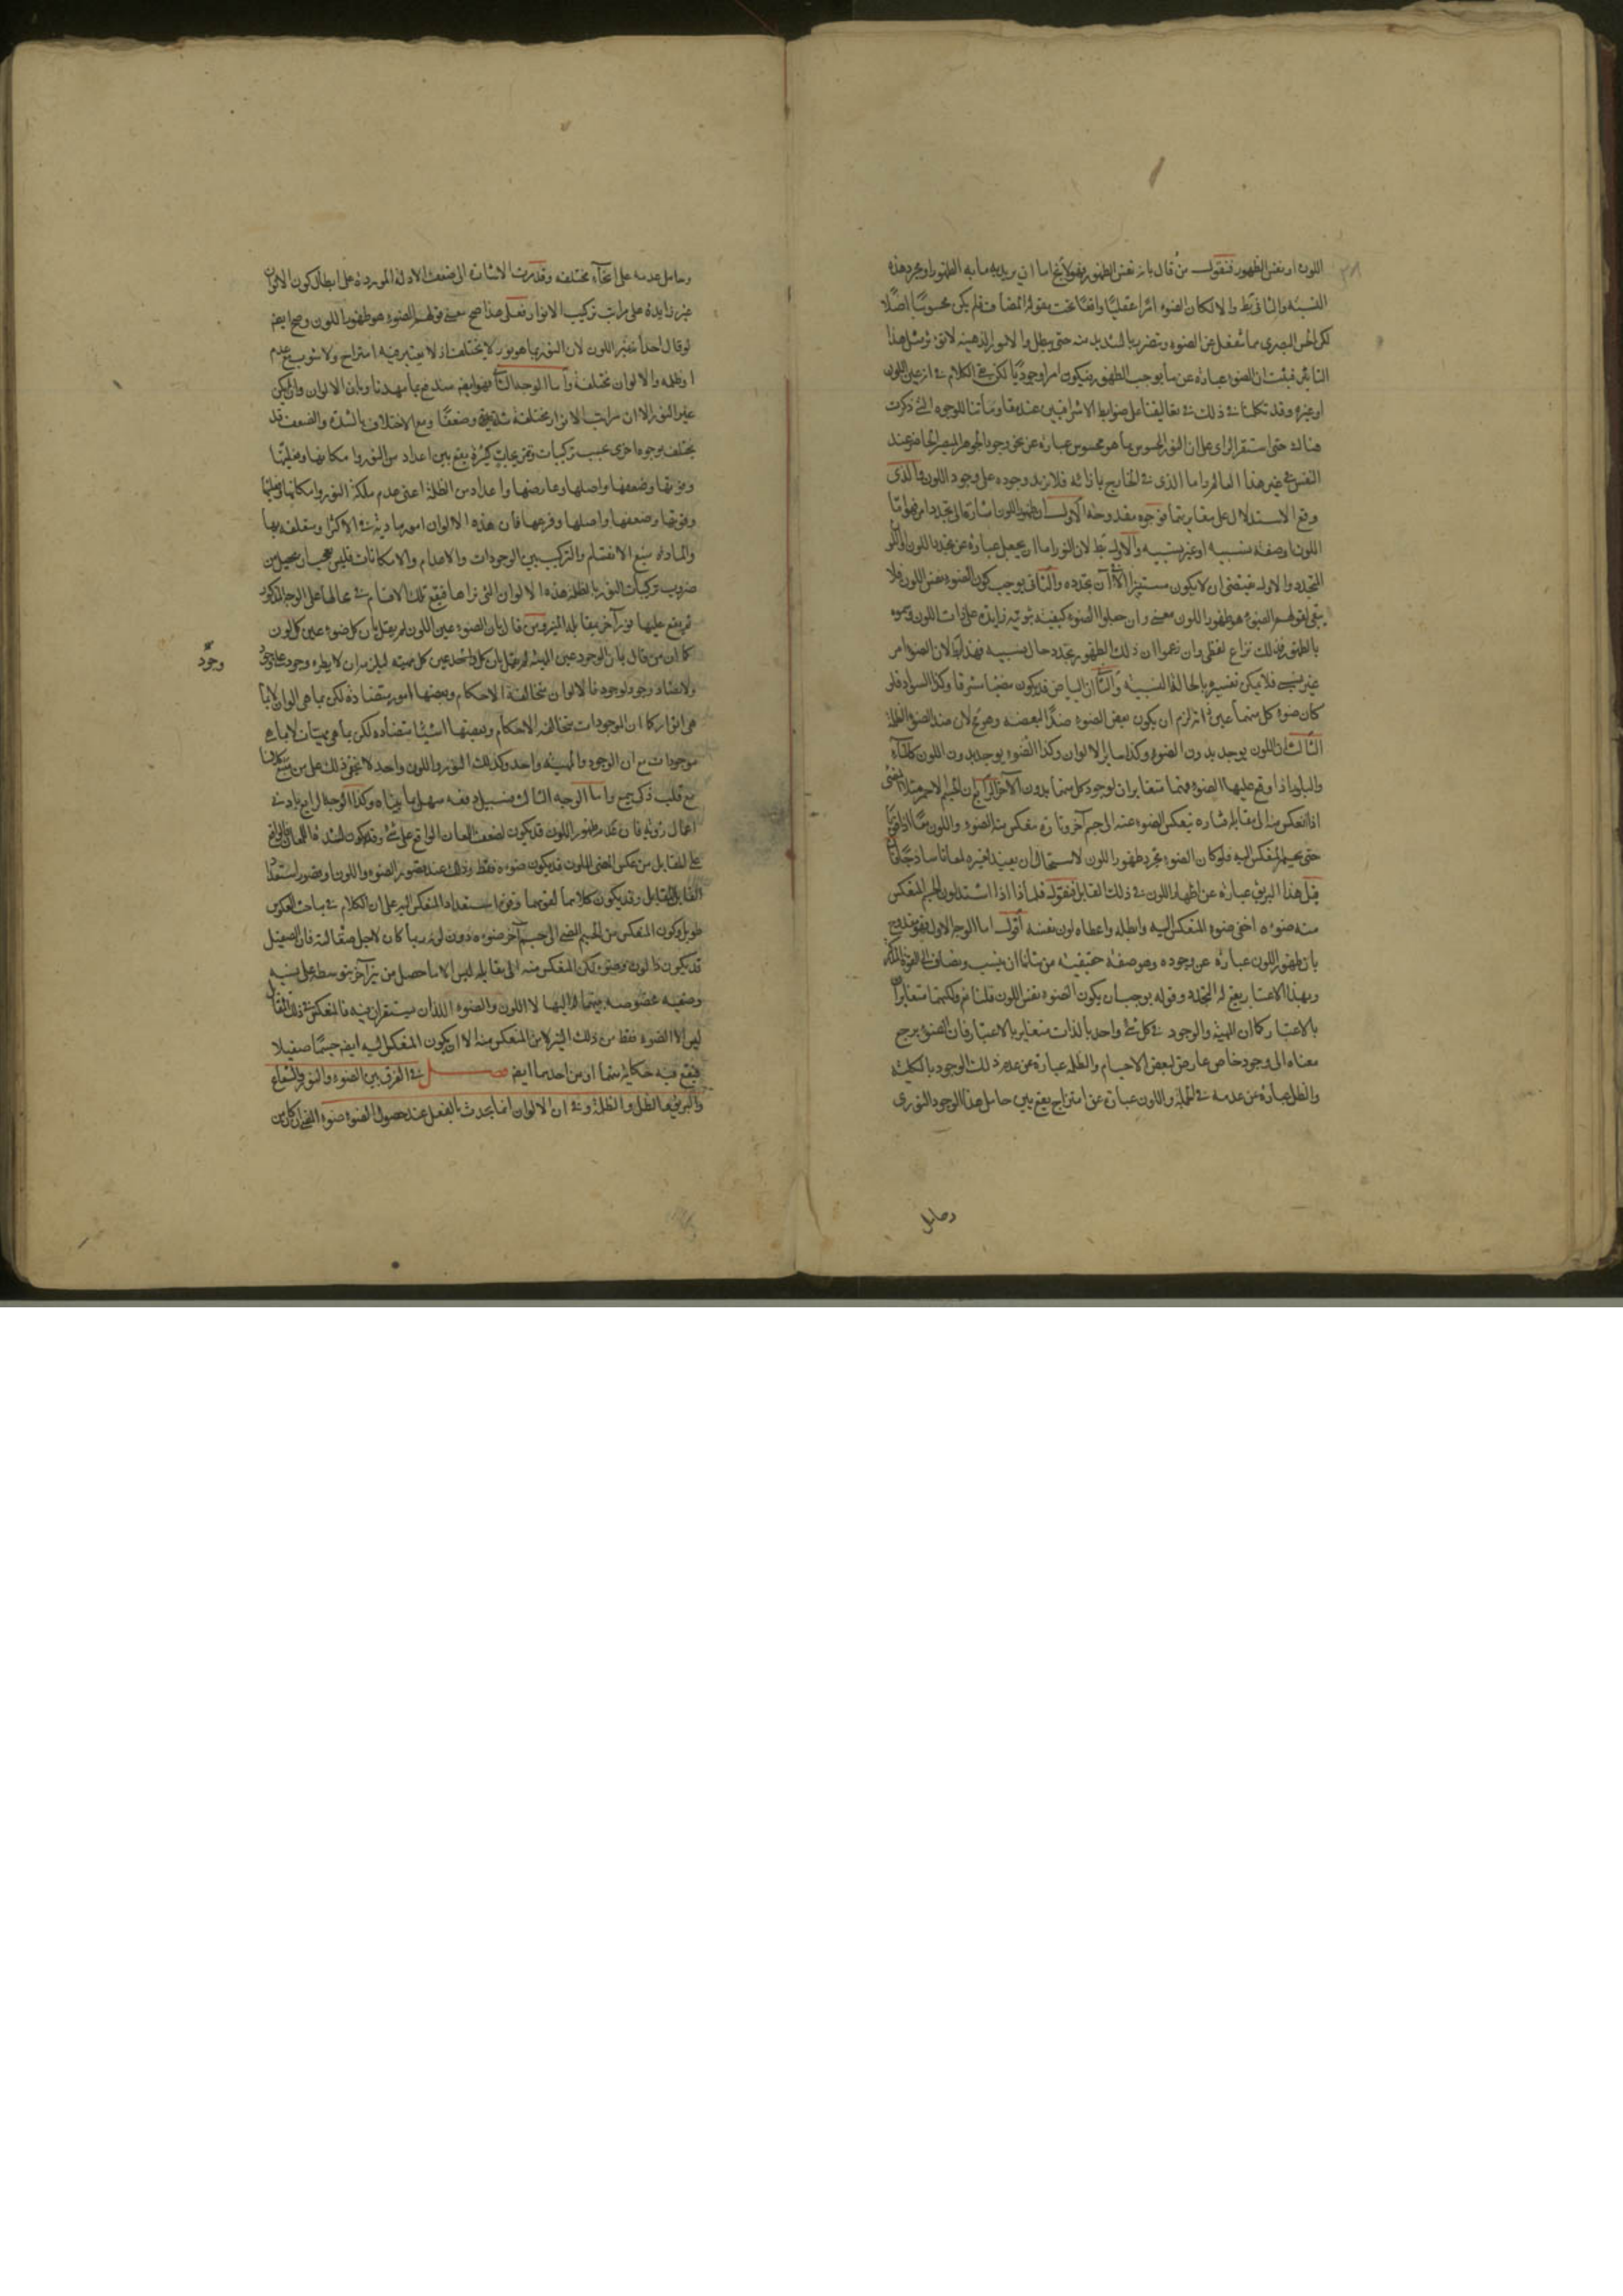 اللون او نفس الظهور فنقول من قال بانه نفس الظهور فهو لا يخ اما ان يريد به ما به الظهور او مجرد هذه
النسبة والثاني بط والا لكان الضوء امرا عقليا واقعا تحت مقولة المضاف فلم يكن محسوسا اصلا
لكن الحس البصري مما ينفعل عن الضوء ويتضرر بالشديد منه حتى يبطل والامور الذهنية لا تؤثر مثل هذا
التاثير فثبت ان الضوء عبارة عن ما يوجب الظهور فيكون امرا وجوديا لكن بقي الكلام في انه عين اللون
او غيره وقد تكلمنا في ذلك في تعاليقنا على ضوابط الاشراقيين عند مقاومتنا للوجوه التي ذكرت
هناك حتى استقر الراي على ان النور المحسوس بما هو محسوس عبارة عن نحو وجود الجوهر المبصر الحاضر عند
النفس في غير هذا العالم واما الذي في الخارج بازائه فلا يزيد وجوده على وجود اللون والذي
وقع الاستدلال على مغايرتهما فوجوه مقدوحة الاول ان ظهور اللون اشارة الى تجدد امر فهو اما
اللون او صفة نسبية او غير نسبية والاول بط لان النور اما ان يجعل عبارة عن تجدد اللون او اللون
المتجدد والاول يقتضي ان لا يكون مستنيرا الا في آن تجدده والثاني يوجب كون الضوء نفس اللون فلا
يبقى لقولهم الضوء هو ظهور اللون معنى وان جعلوا الضوء كيفية ثبوتية زايدة على ذات اللون وسموه
بالظهور فذلك نزاع لفظي وان زعموا ان ذلك الظهور تجدد حال نسبيه فهذا بط لان الضوء امر
غير نسبي فلا يمكن تفسيره بالحالة النسبية والثاني ان البياض قد يكون مضيئا مشرقا وكذا السواد فلو
كان ضوء كل منهما عين ذاته لزم ان يكون بعض الضوء ضدا لبعضه وهو مح لان ضد الضوء الظلمة
الثالث ان اللون يوجد بدون الضوء وكذا ساير الالوان وكذا الضوء يوجد بدون اللون كالماء
والبلور اذا وقع عليهما الضوء فهما متغايران لوجود كل منهما بدون الآخر الرابع ان الجسم الاحمر مثلا المضيء
اذا انعكس منه الى مقابله فتارة ينعكس الضوء عنه الى جسم آخر وتارة ينعكس منه الضوء واللون معا اذا قويا
حتى يحمر المنعكس اليه فلو كان الضوء مجرد ظهور اللون لاستحال ان يفيد لغيره لمعانا ساذجا فان
قيل هذا البريق عبارة عن اظهار اللون في ذلك القابل فنقول فلماذا اذا اشتد لون الجسم المنعكس
منه ضوءه اخفى ضوء المنعكس اليه وابطله واعطاه لون نفسه اقول اما الوجه الاول فهو مقدوح
بان ظهور اللون عبارة عن وجوده وهو صفة حقيقية من شانها ان ينسب ويضاف الى القوة المدركة
وبهذا الاعتبار يقع له التجدد وقوله يوجب ان يكون الضوء نفس اللون قلنا نعم ولكنهما متغايران
بالاعتبار كما ان المهية والوجود في كل شي واحد بالذات متغاير بالاعتبار فان الضوء يرجع
معناه الى وجود خاص عارض لبعض الاجسام والظلمة عبارة عن عدم ذلك الوجود بالكلية
والظل عبارة عن عدمه في الجملة واللون عبارة عن امتزاج يقع بين حامل هذا الوجود النوري
وحامل
وحامل عدمه على انحاء مختلفة وقد مرت الاشارة الى ضعف الادلة الموردة على ابطال كون الالوان
غير زايدة على مراتب تركيب الانوار فعلى هذا صح معنى قولهم الضوء هو ظهور اللون وصح ايضا
لو قال احد انه غير اللون لان النور بما هو نور لا يختلف اذ لا يعتبر فيه امتزاج ولا شوب مع عدم
او ظلمة والالوان مختلفة واما الوجه الثاني فهو ايضا مندفع بما مهدنا وبان الالوان وان لم يكن
غير النور الا ان مراتب الانوار مختلفة شدة وضعفا ومع الاختلاف بالشدة والضعف قد
يختلف بوجوه اخرى بحسب تركيبات وتمزيجات كثيرة يقع بين اعداد من النور وامكانها وفعليتها
وقوتها وضعفها واصلها وعارضها واعداد من الظلمة اعني عدم ملكة النور وامكانها وفعليتها
وقوتها وضعفها واصلها وفرعها فان هذه الالوان امور مادية في الاكثر او متعلقة بها
والمادة منبع الانقسام والتركيب بين الوجودات والاعدام والامكانات فليس بعجب ان يحصل من
ضروب تركيبات النور بالظلمة هذه الالوان التي نراها فيقع تلك الاقسام في محالها على الوجه المذكور
ثم يقع عليها نور آخر بمقابلة المنير ومن قال بان الضوء عين اللون لم يقل بان كل ضوء عين كل لون
كما ان من قال بان الوجود عين المهية لم يقل بان كل واحد عين كل مهية ليلزمه ان لا يطرء وجود على وجود
وجود
ولا يضاد وجود لوجود فالالوان متخالفة الاحكام وبعضها امور متضادة لكن بما هي الوان لا بما
هي انوار كما ان الوجودات متخالفة الاحكام وبعضها اشياء متضادة لكن بما هي مهيات لا بما هي
موجودات مع ان الوجود والمهية واحد وكذلك النور واللون واحد لا يخفى ذلك على من تتبع كلامنا
مع قلب ذكي جمع واما الوجه الثالث فسبيل دفعه سهل بما بيناه وكذا الوجه الرابع بادنى
اعمال روية فان عدم ظهور اللون قد يكون لضعف اللمعان الواقع على شي وقد يكون لشدته فاللمعان الواقع
على المقابل من عكس المضيء الملون قد يكون ضوءه فقط وذلك عند قصور الضوء واللون او قصور استعداد
القابل المقابل وقد يكون كلاهما لقوتهما وقوة استعداد المنعكس اليه على ان الكلام في مباحث العكوس
طويل وكون المنعكس من الجسم المضيء الى جسم آخر ضوءه دون لونه ربما كان لاجل صقالته فان الصقيل
قد يكون ذا لون وضوء لكن المنعكس منه الى مقابله ليس الا ما حصل من نير آخر بتوسطه على نسبة
وضعية مخصوصة بينهما او بينها لا اللون والضوء اللذان يستقران فيه فالمنعكس في ذلك القابل
ليس الا الضوء فقط من ذلك النير لا من المنعكس منه الا ان يكون المنعكس اليه ايضا جسما صقيلا
فيقع فيه حكاية منهما او من احدهما ايضا فصل في الفرق بين الضوء والنور والشعاع
والبريق والظل والظلمة وفي ان الالوان انما يحدث بالفعل عند حصول الضوء ضوء الشي ان كان من